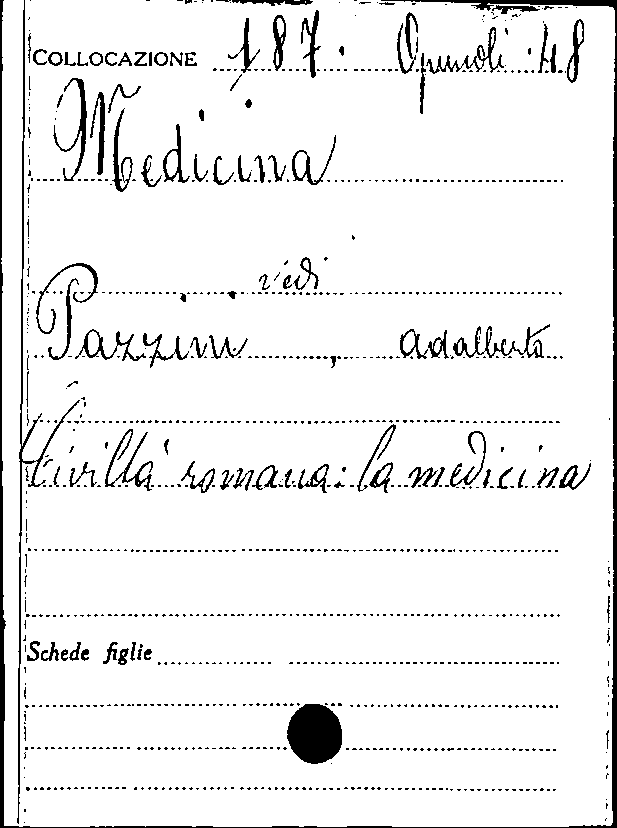 COLLOCAZIONE 187. Opuscoli .48
Medicina
vedi
Pazzini, Adalberto
Civiltà romana: la medicina
Schede figlie